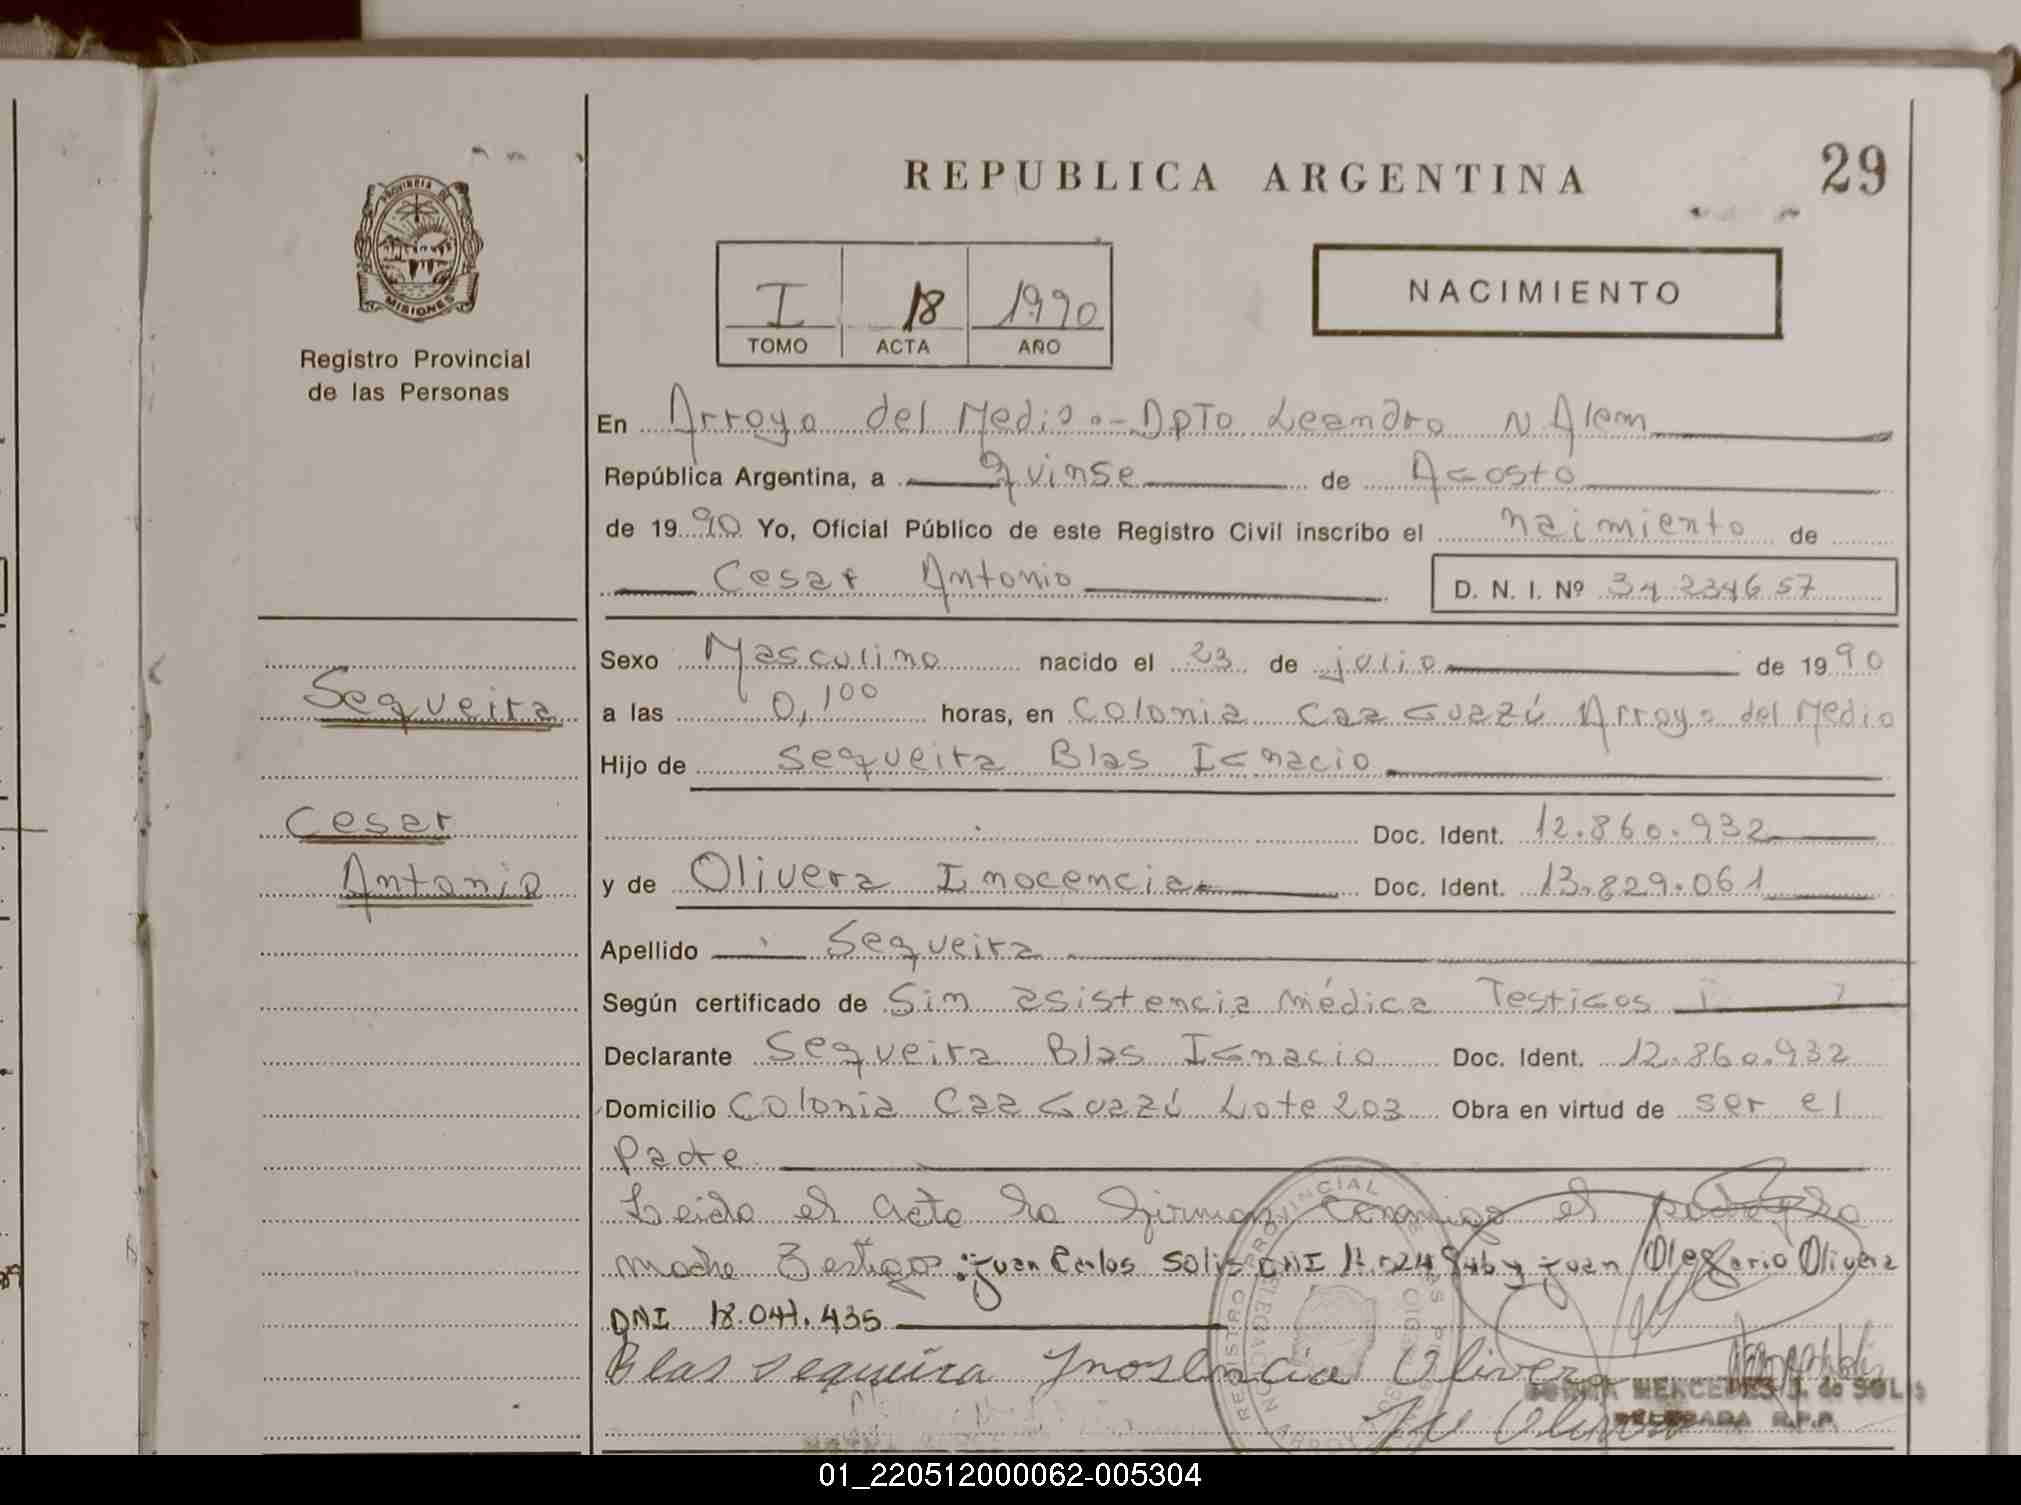 REPUBLICA ARGENTINA
29
PROVINCIA DE
MISIONES
Registro Provincial
de las Personas
I 18 1990
TOMO ACTA AÑO
NACIMIENTO
En Arroyo del Medio.- Dpto Leandro N Alem
República Argentina, a quinse de Agosto
de 1990 Yo, Oficial Público de este Registro Civil inscribo el naimiento de
Cesar Antonio D. N. I. Nº 34 234657
Sexo Masculino nacido el 23 de julio de 1990
Sequeira
a las 0,100 horas, en Colonia Caa Guazú Arroyo del Medio
Hijo de Sequeira Blas Ignacio
Cesar
Doc. Ident. 12.860.932
Antonio
y de Olivera Inocencia Doc. Ident. 13.829.061
Apellido Sequeira
Según certificado de Sin asistencia médica Testigos
Declarante Sequeira Blas Ignacio Doc. Ident. 12.860.932
Domicilio Colonia Caa Guazú Lote 203 Obra en virtud de ser el
Padre
Leida el acta la firman conmigo el padre, la
madre Testigos: Juan Carlos Solis DNI y Juan Olegario Olivera
DNI 18.041.435
Blas sequeira Inoslencia Olivera
MERCEDES J. de SOLIS
DELEGADA R.P.P.
REGISTRO PROVINCIAL
01_220512000062-005304